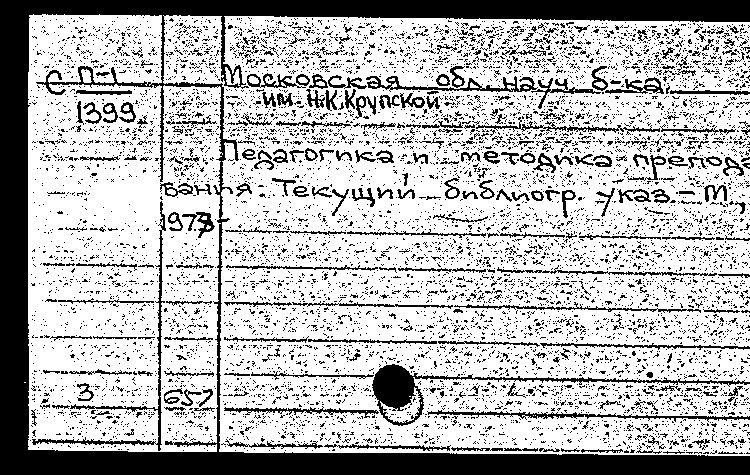 С П-1 Московская обл. науч. б-ка
им. Н.К.Крупской
1399
Педагогика и методика препода
вания: Текущий библиогр. указ. – М.,
197
3 657